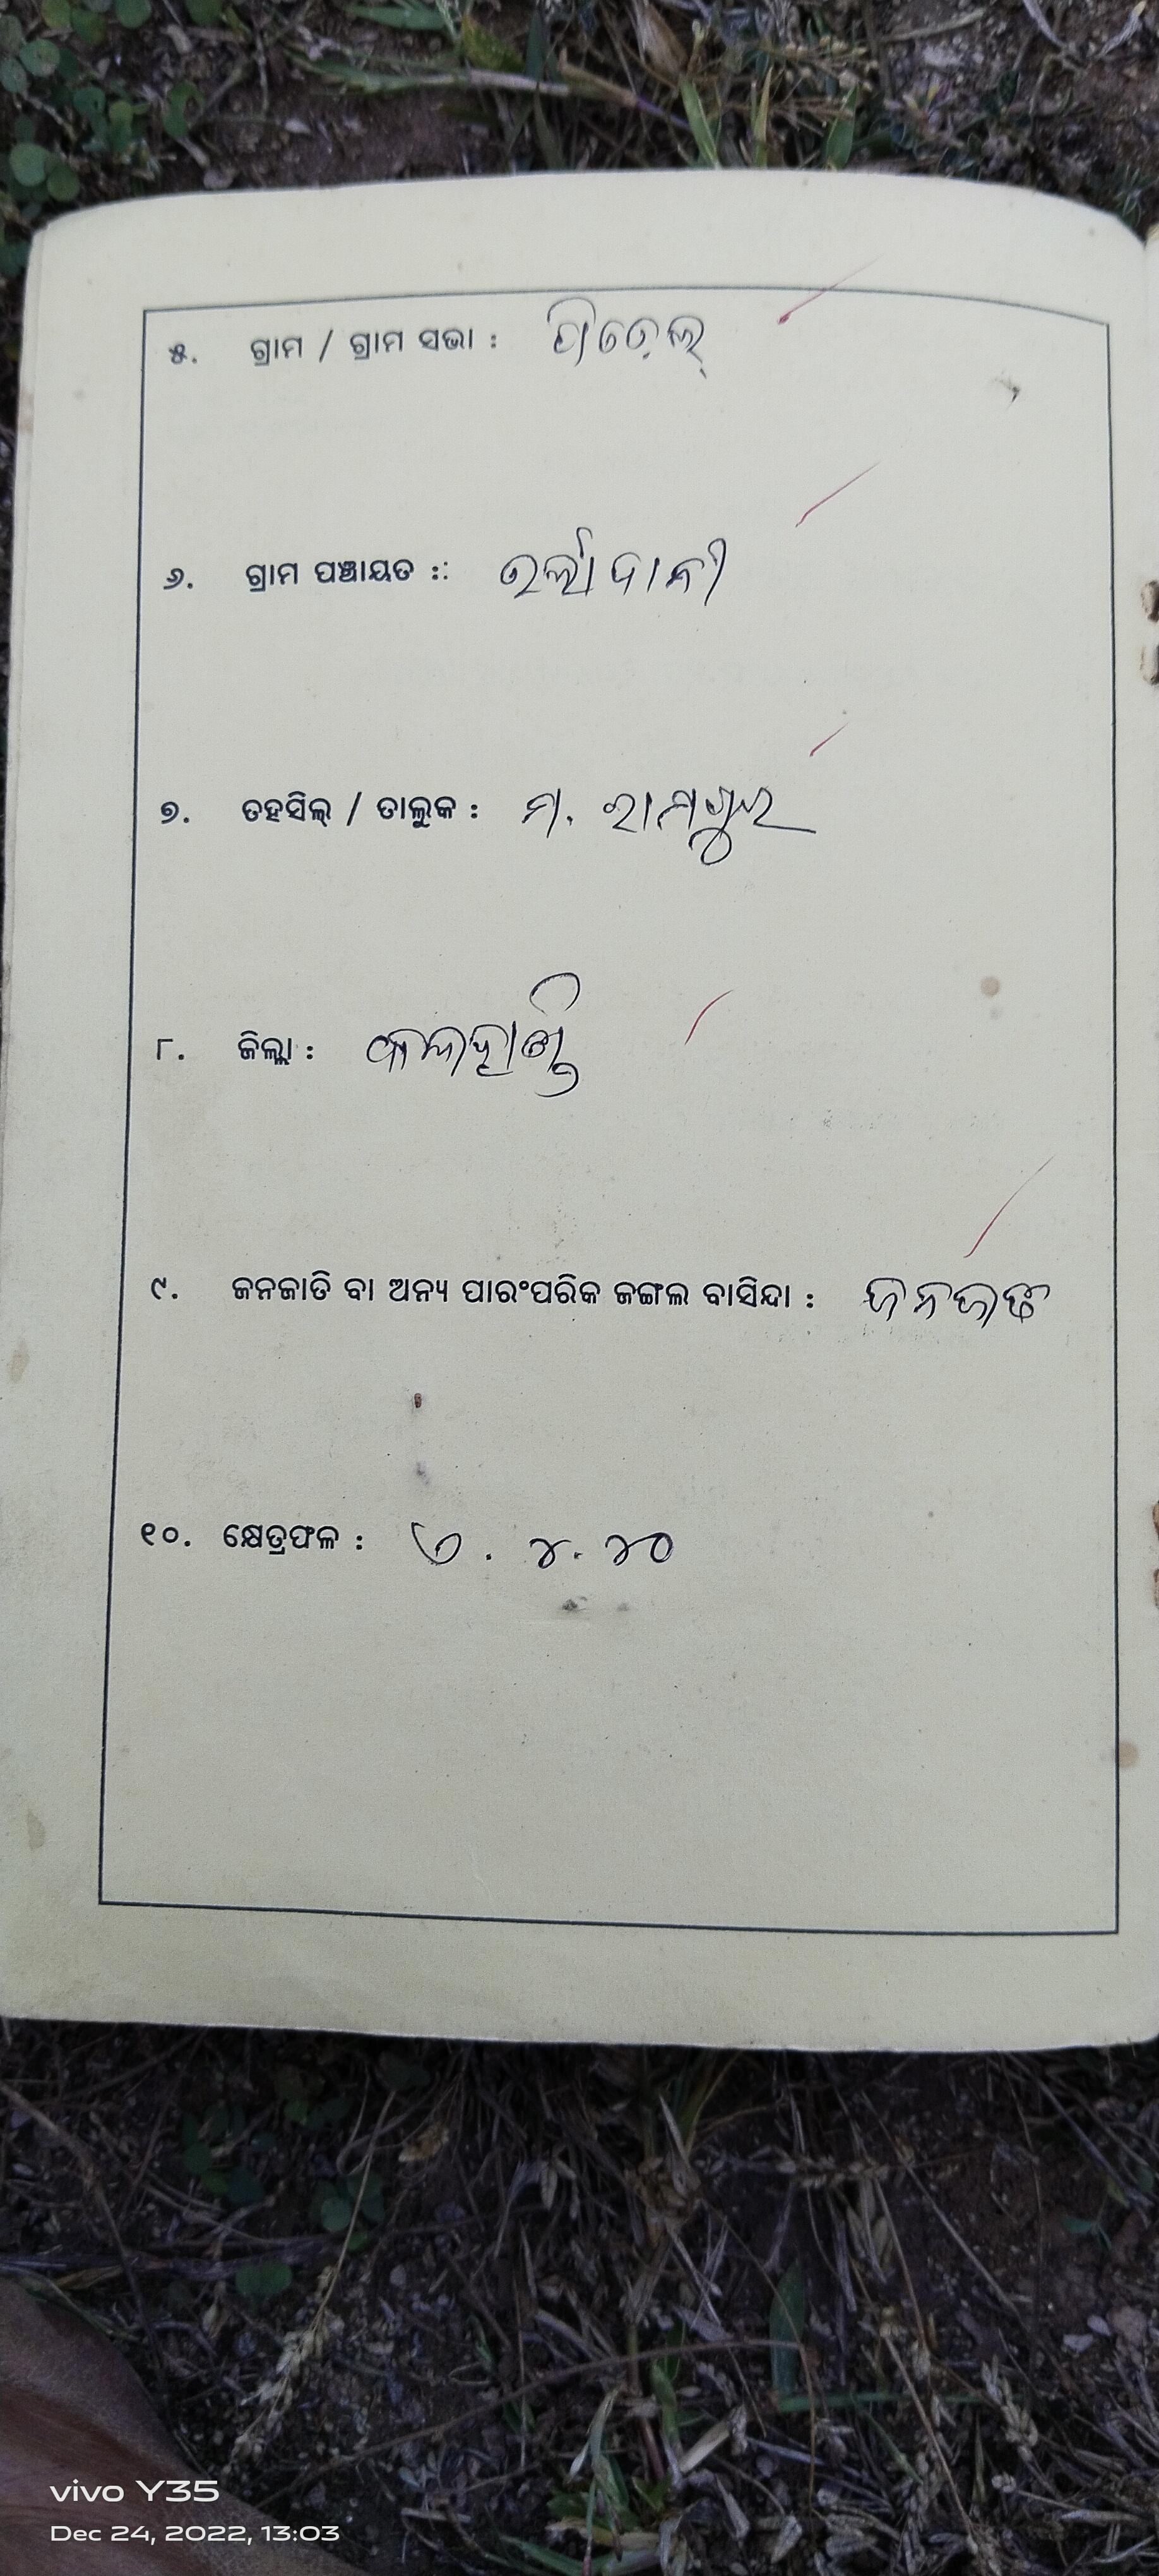 ୫. ଗ୍ରାମ / ଗ୍ରାମ ସଭା :
୬. ଗ୍ରାମ ପଞ୍ଚାୟତ :: ଉର୍ଲାଦାନୀ
୭. ତହସିଲ୍ / ତାଲୁକ : ମ. ରାମପୁର
୮. ଜିଲ୍ଲା : କଳାହାଣ୍ଡି
୯. ଜନଜାତି ବା ଅନ୍ୟ ପାରଂପରିକ ଜଙ୍ଗଲ ବାସିନ୍ଦା :
୧୦. କ୍ଷେତ୍ରଫଳ : ୬ . ୪. ୪୦
vivo Y35
Dec 24, 2022, 13:03